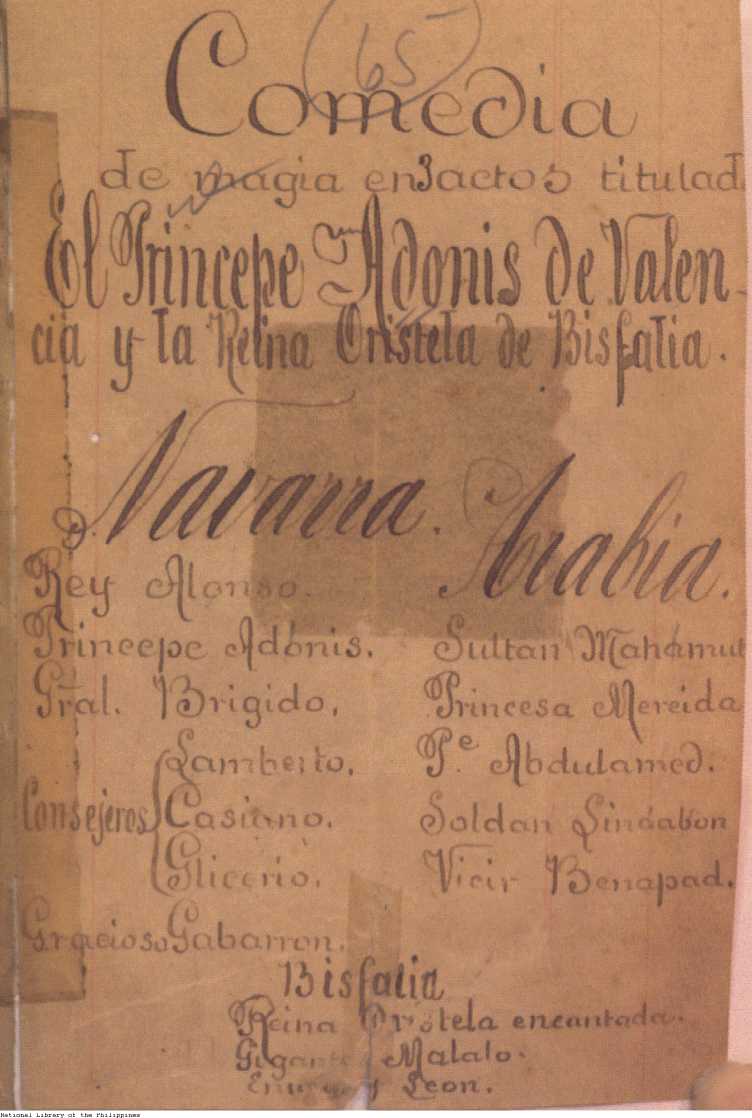 65
Comedia
de magia en 3 actos titulad
El Princepe Adonis de Valen-
cia y la Reina Oristela de Bisfalia.
Navarra.
Rey Alonso.
Princepe Adonis.
Gral. Brigido.
Consejeros
Lamberto.
Casiano.
Glicerio.
Gracioso Gabarron.
Arabia.
Sultan Mahamut
Princesa Mereida
Pe. Abdulamed.
Soldan Lindabon
Vicir Benapad.
Bisfalia
Reina Oristela encantada.
Gigante Malalo.
y Leon.
National Library of the Philippines